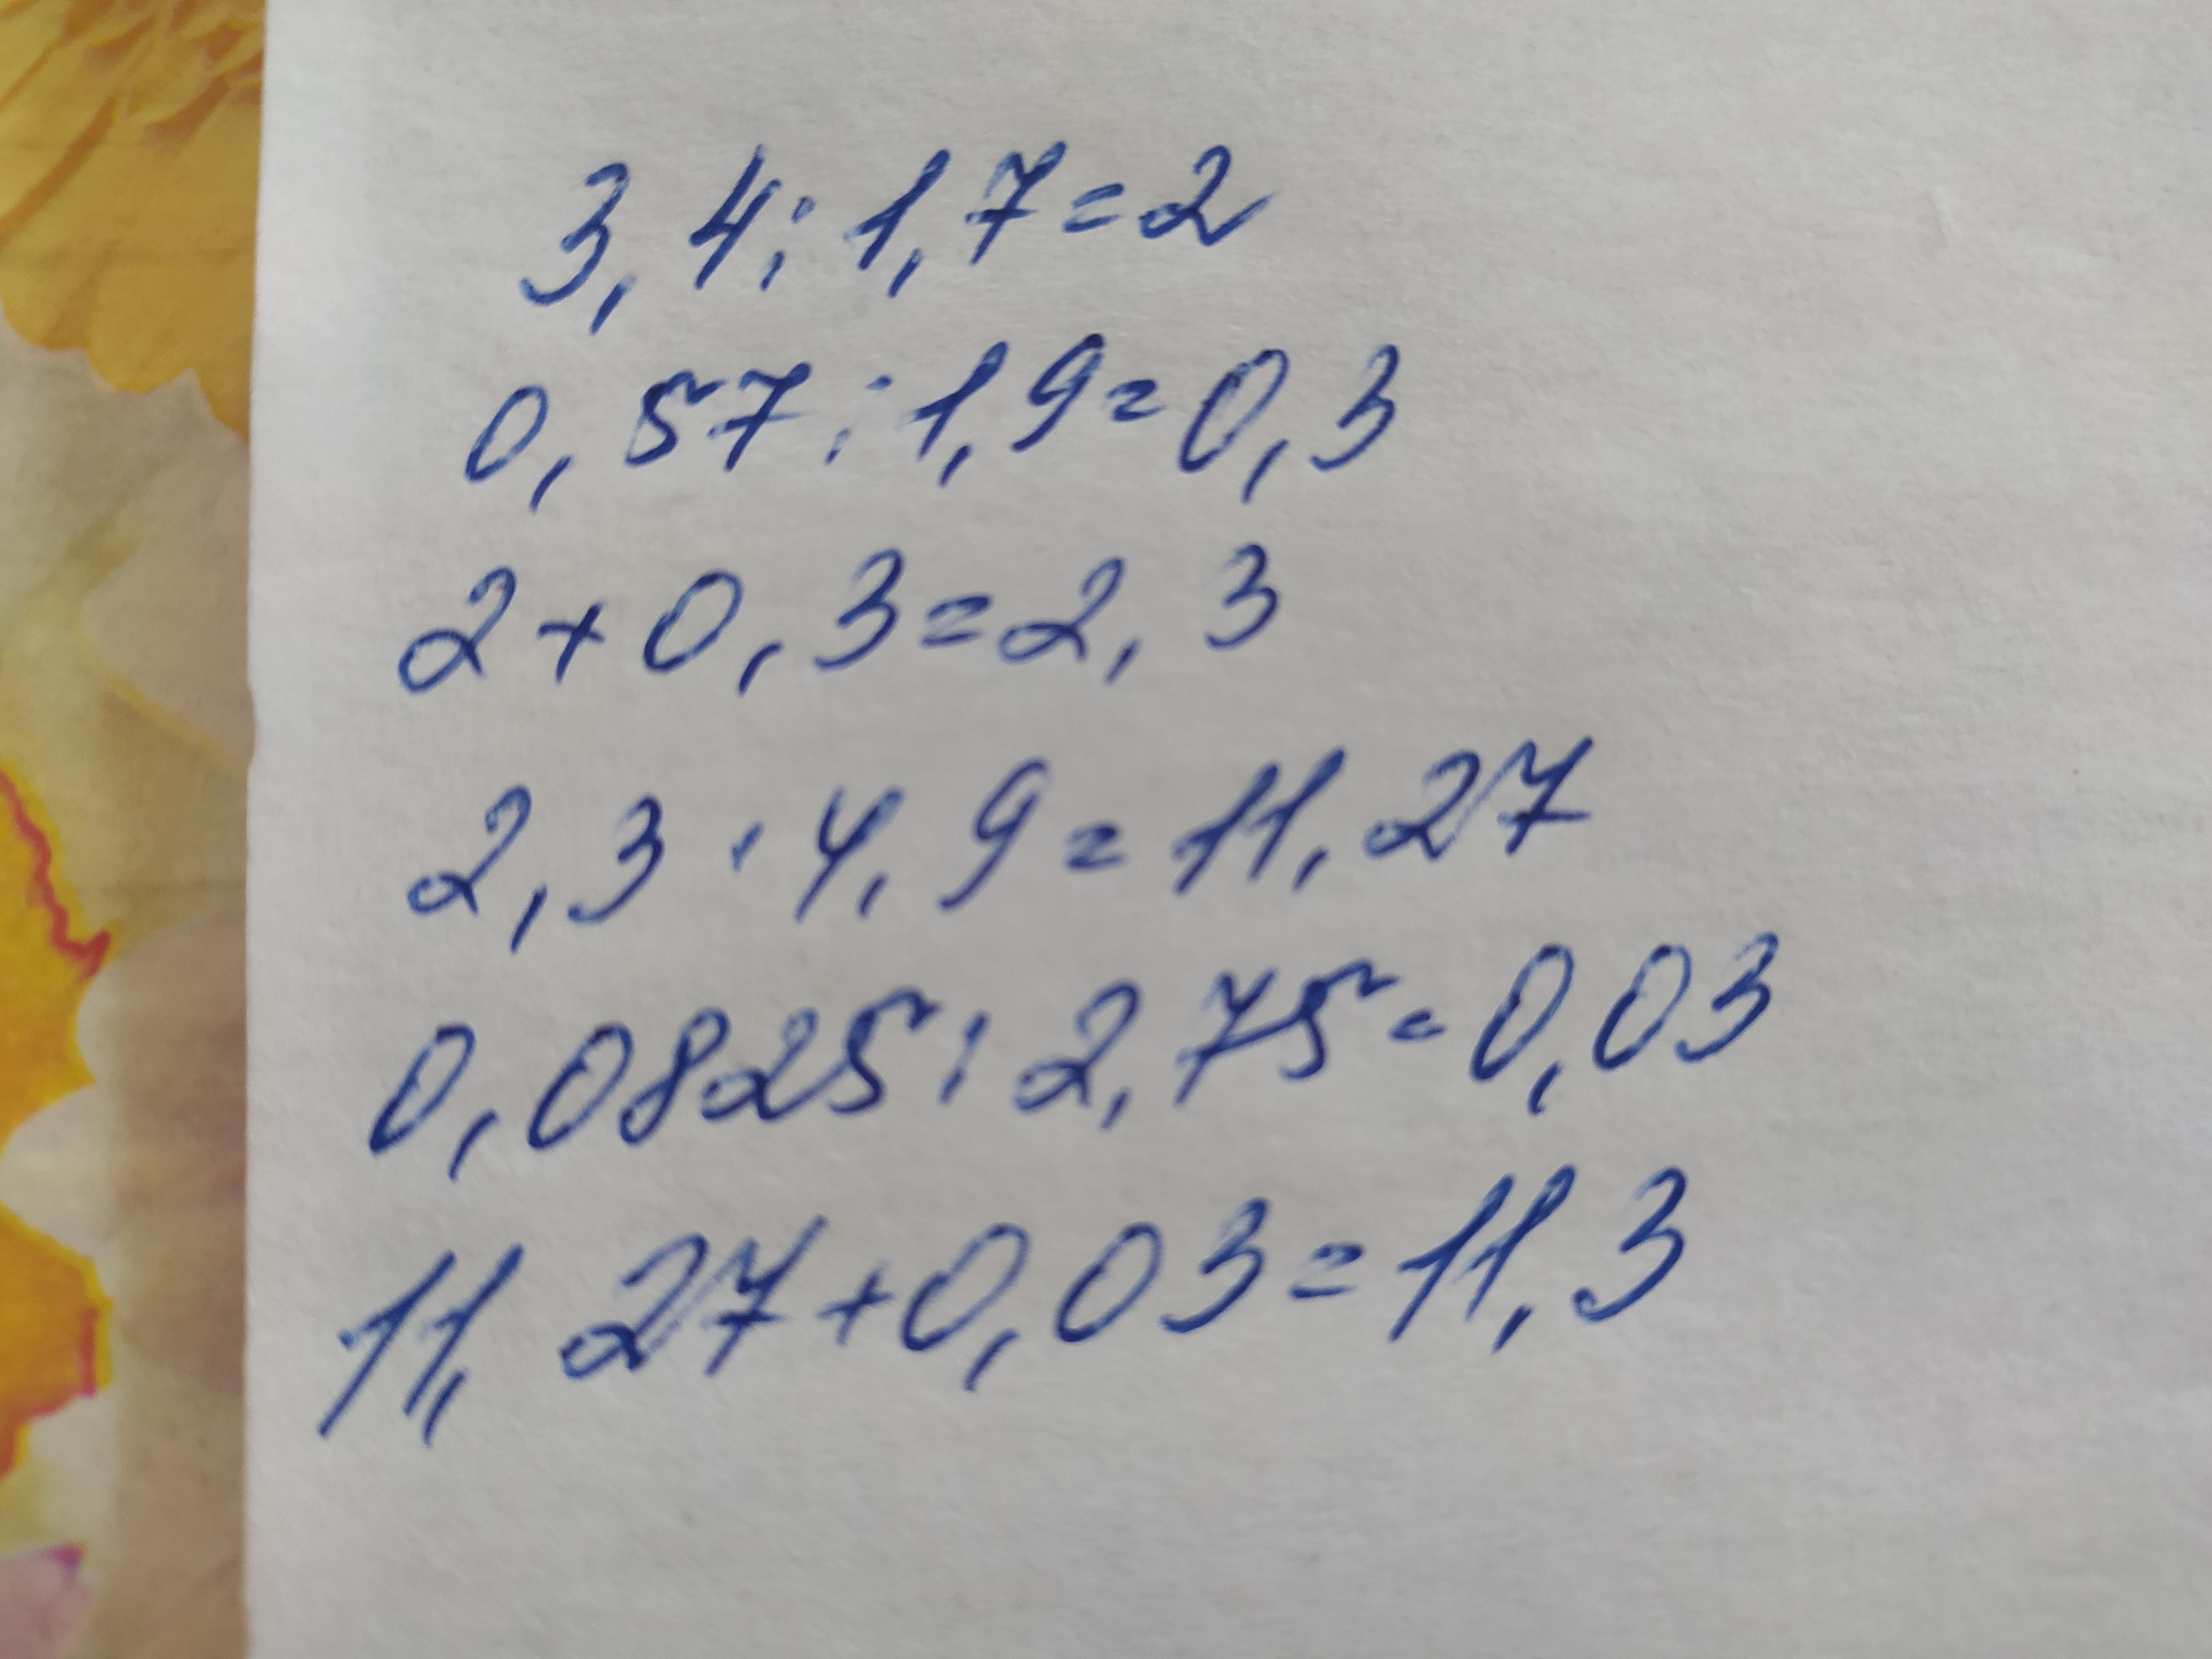 3,4:1,7=2
0,57:1,9=0,3
2+0,3=2,3
2,3·4,9=11,27
0,0825:2,75=0,03
11,27+0,03=11,3